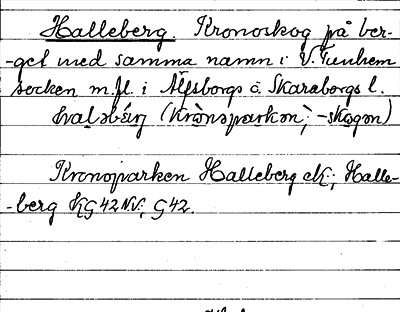 Halleberg. Kronoskog på ber-
-get med samma namn i V. Tunhem
socken m.fl. i Älfsborgs o. Skaraborgs l.
(kronsparkən; -skogən)
Kronoparken Halleberg ek; Halle-
-berg KG 42 NV; G 42.